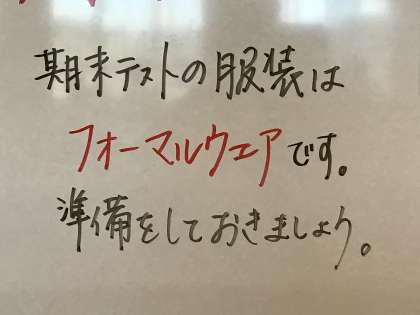 期末テストの服装は
フォーマルウェアです。
準備をしておきましょう。